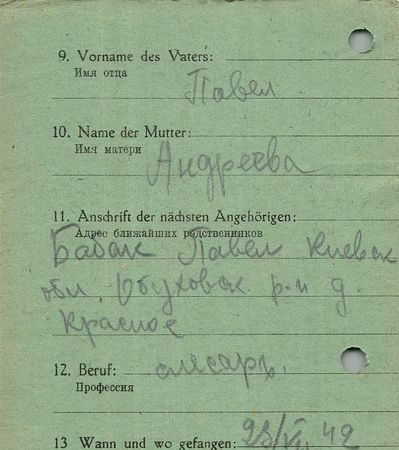 9. Vorname des Vaters:
Имя отца
Павел
10. Name der Mutter:
Имя матери
Андреева
11. Anschrift der nächsten Angehörigen:
Адрес ближайших родственников
Бабак Павел Киевск
обл. Обуховск р-н д.
Красное
12. Beruf: слесарь.
Профессия
13 Wann und wo gefangen: 23/VII 42